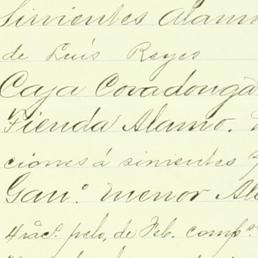 Sirvientes Alamo
de Luis Reyes
Caja Covadonga
Tienda Alamo.
ciones á sirvientes
Gan.º menor Al
4 rac.s pelo, de Feb. comp.s